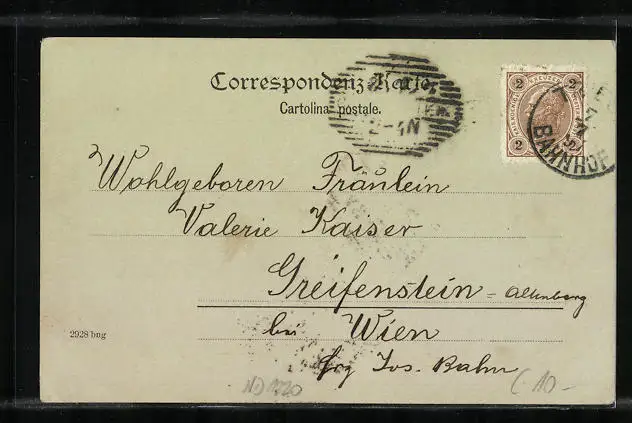 Correspondenz-Karte.
Cartolina postale.
2 2
2 2
2-4N
BAHNHOF
Wohlgeboren Fräulein
Valerie Kaiser
Greifenstein - Altenberg
bei Wien
Frz Jos. Bahn
2928 bng